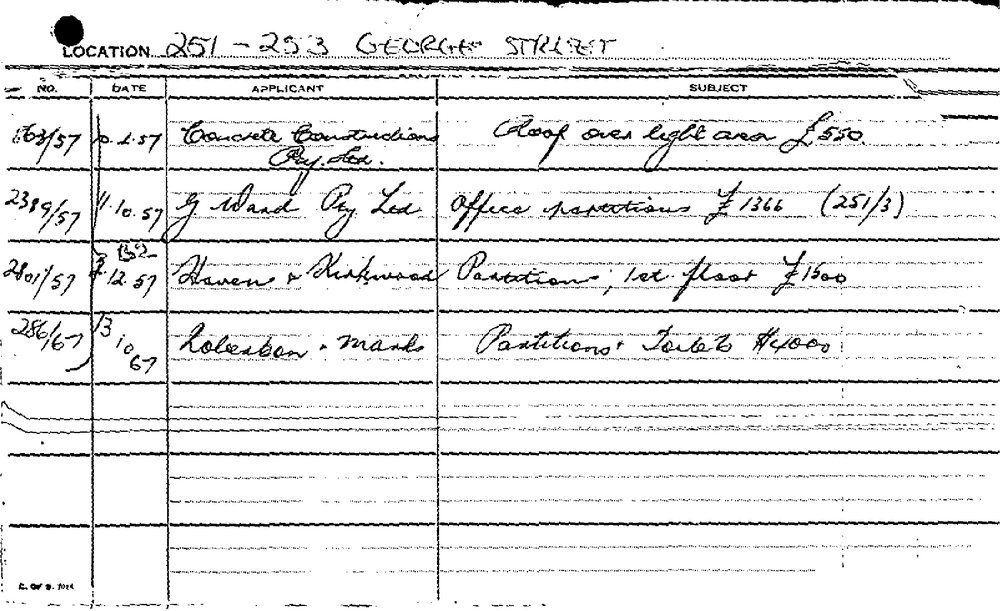 LOCATION 251 - 253 GEORGE STREET
NO. DATE APPLICANT SUBJECT
163/57 2.57 Concrete Constructions Roof over light area £550.
Pty. Ltd.
2389/57 11.10.57 G Ward Pty Ltd Office partitions £1366 (251/3)
2801/57 12.57 & Kirkwood Partitions, 1st floor £1500
286/67 13 Robertson & Marks Partitions & Toilets $4000
10
67
C. OF S.